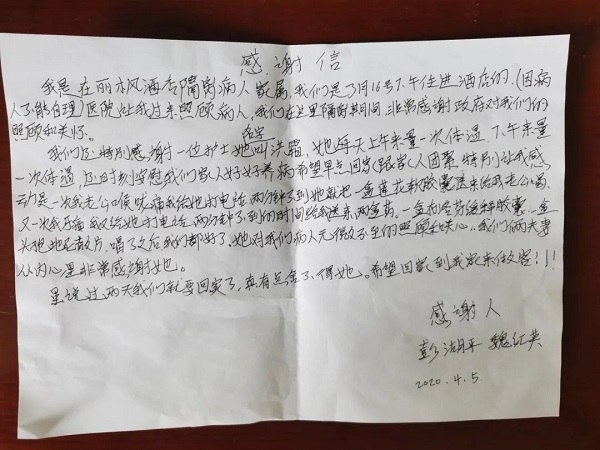 感谢信
我是在丽枫酒店隔离病人家属,我们是3月16号下午住进酒店的.(因病
人不能自理)医院让我过来照顾病人,我们在这里隔离其间非常感谢政府对我们的
照顾和关怀.
我们还特别感谢一位护士她叫洪霜,她每天上午来量一次体温 下午来量
一次体温,还时刻安慰我们家人好好养病希望早点回家(跟家人团聚 特别让我感
动是一次我老公喉咙痛我给她打电话 两分钟不到她就把一盒莲花和胶囊送来给我老公喝.
又一次我牙痛我又给她打电话,两分钟不到的时间给我送来两盒药。一盒布洛芬缓释胶囊,一盒
头孢地尼散片.喝了之后我们都好了,她对我们病人无微不至的照顾和关心,我们俩夫妻
从内心里非常感谢她。
虽说过两天我们就要回家了,真有点舍不得她。希望回家到我家来做客!!!
感谢人
彭湖平 魏红英
2020.4.5